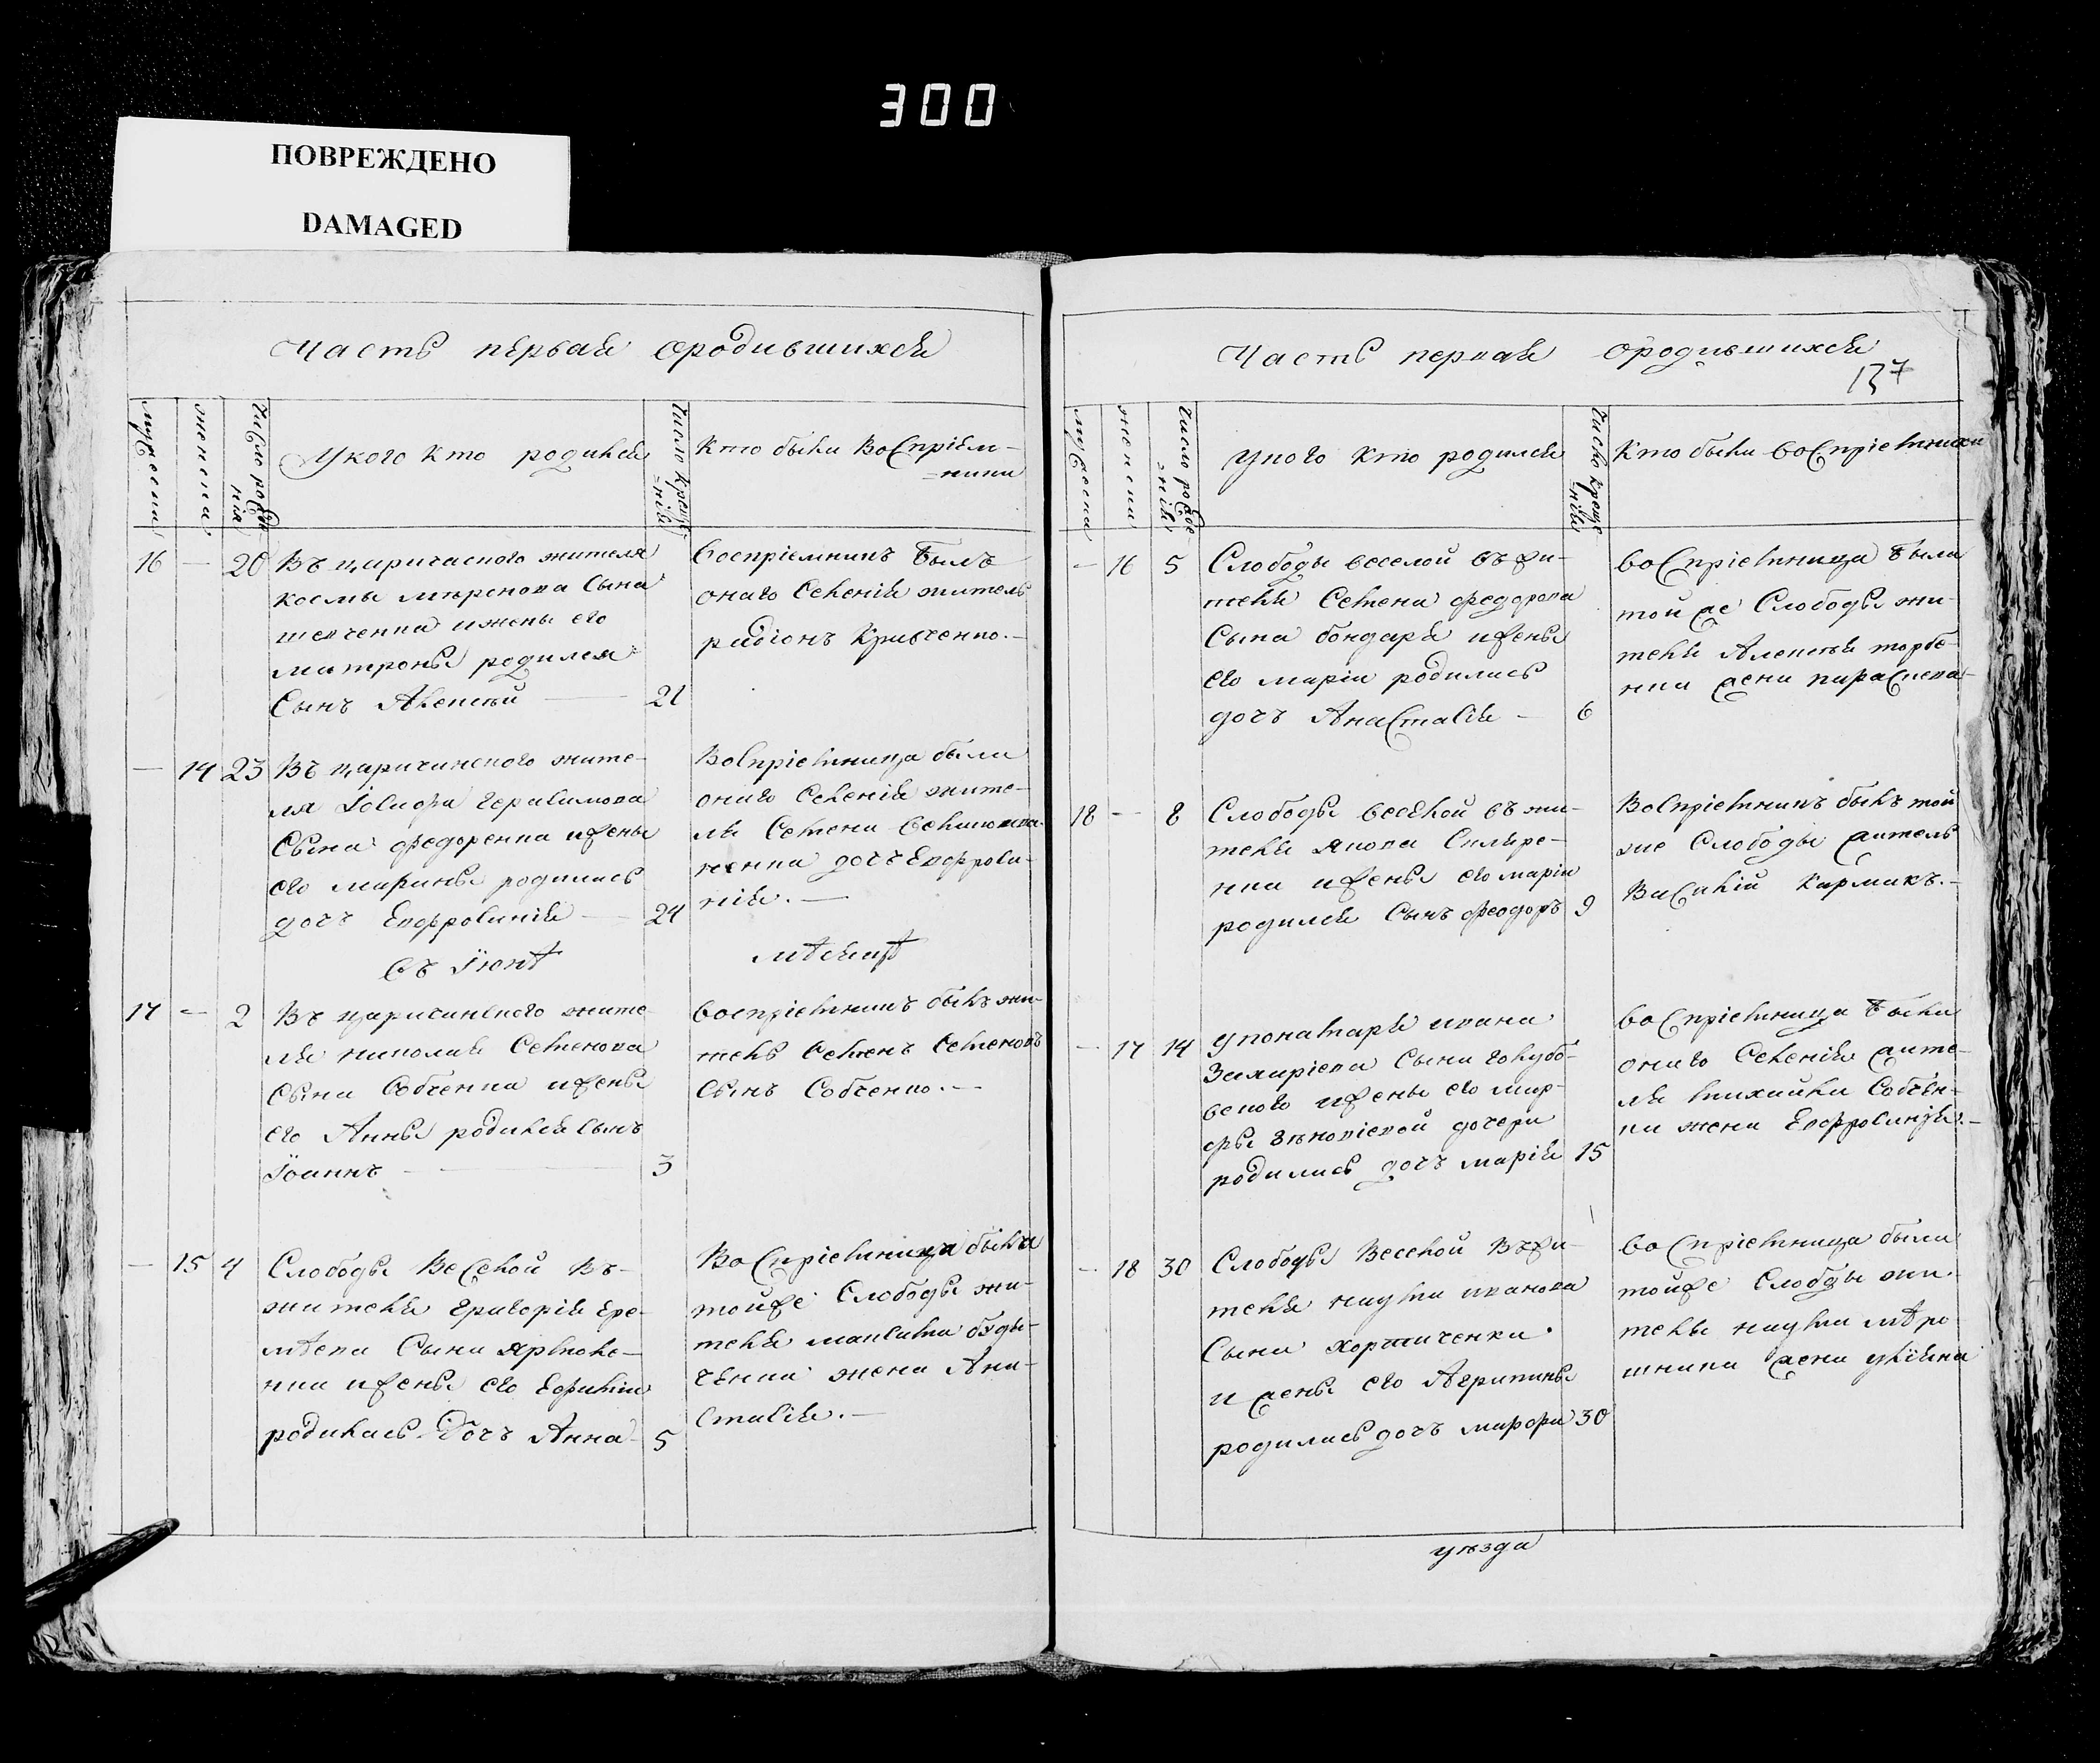 300
ПОВРЕЖДЕНО
DAMAGED
Часть первая ородившихся
мужеска
женска
Число рожде
нія
Укого кто родился
Число креще
=нія
Кто были Воспріем-
=ники
16 — 20 Въ царичаского жителя
космы миронова Сына
шевченка ижены его
матроны родился
Сынъ Алексѣй — 21
Воспріемникъ былъ
онаго Селенія житель
радіонъ Кривченко.—
— 14 23 Въ царичинского жите-
ля Іосифа герасимова
Сына федоренка ижены
его марины родилась
дочъ Евфросинія — 24
Воспріемница была
онаго Селенія жите-
ля Семена
ненка дочъ Евфроси-
нія.—
Въ Іюнѣ
мѣсяцѣ
17 — 2 Въ царичинского жите
ля николая Семенова
Сына Собченка ижены
его Анны родился Сынъ
Іоаннъ — 3
Воспріемникъ былъ жи-
тель Семенъ Семеновъ
Сынъ Собченко.—
— 15 4 Слободы Веселой въ-
жителя григорія Ере-
мѣева Сына ярмоле-
нка ижены его Ефиміи
родилась Дочъ Анна 5
Воспріемница была
тойже Слободы жи-
теля максима буды-
ченка жена Ана-
стасія.—
Часть первая ородившихся
137
мужеска
женска
Число рожде
=нія
Укого кто родился
Число креще
=нія
Кто были воспріемники
— 16 5 Слободы веселой въжи-
теля Семена федорова
Сына бондаря ижены
его маріи родилась
дочъ Анастасія — 6
воспріемница была
той же Слободы жи-
теля Алексѣя торбе-
нка жена параскева
18 — 8 Слободы веселой въ жи-
теля якова Скляре-
нка ижены его маріи
родился Сынъ феодоръ 9
Воспріемникъ былъ той
же Слободы житель
Василій Кармакъ.—
— 17 14 упонамаря ивана
Захаріева Сына голубо-
вского ижены его мар-
фы зѣновіевой дочери
родилась дочъ марія 15
воспріемница была
онаго Селенія жите-
ля михайла Собчен-
ка жена Евфросинія.—
— 18 30 Слободы Веселой Въжи-
теля наума иванова
Сына
и жены его Агрипины
родилась дочъ марфа 30
воспріемница была
тойже Слобды жи-
теля наума мѣро
шника жена уліяна
уѣзда